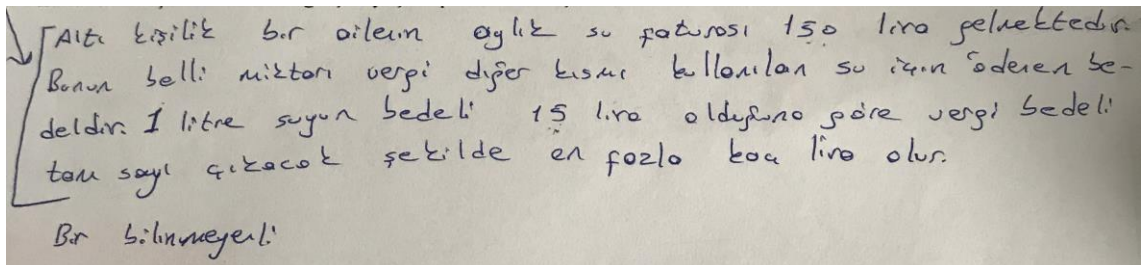 Altı kişilik bir ailenin aylık su faturası 150 lira gelmektedir.
Bunun belli miktarı vergi diğer kısmı kullanılan su için ödenen be-
deldir. 1 litre suyun bedeli 15 lira olduğuna göre vergi bedeli
tam sayı çıkacak şekilde en fazla kaç lira olur.
Bir bilinmeyenli